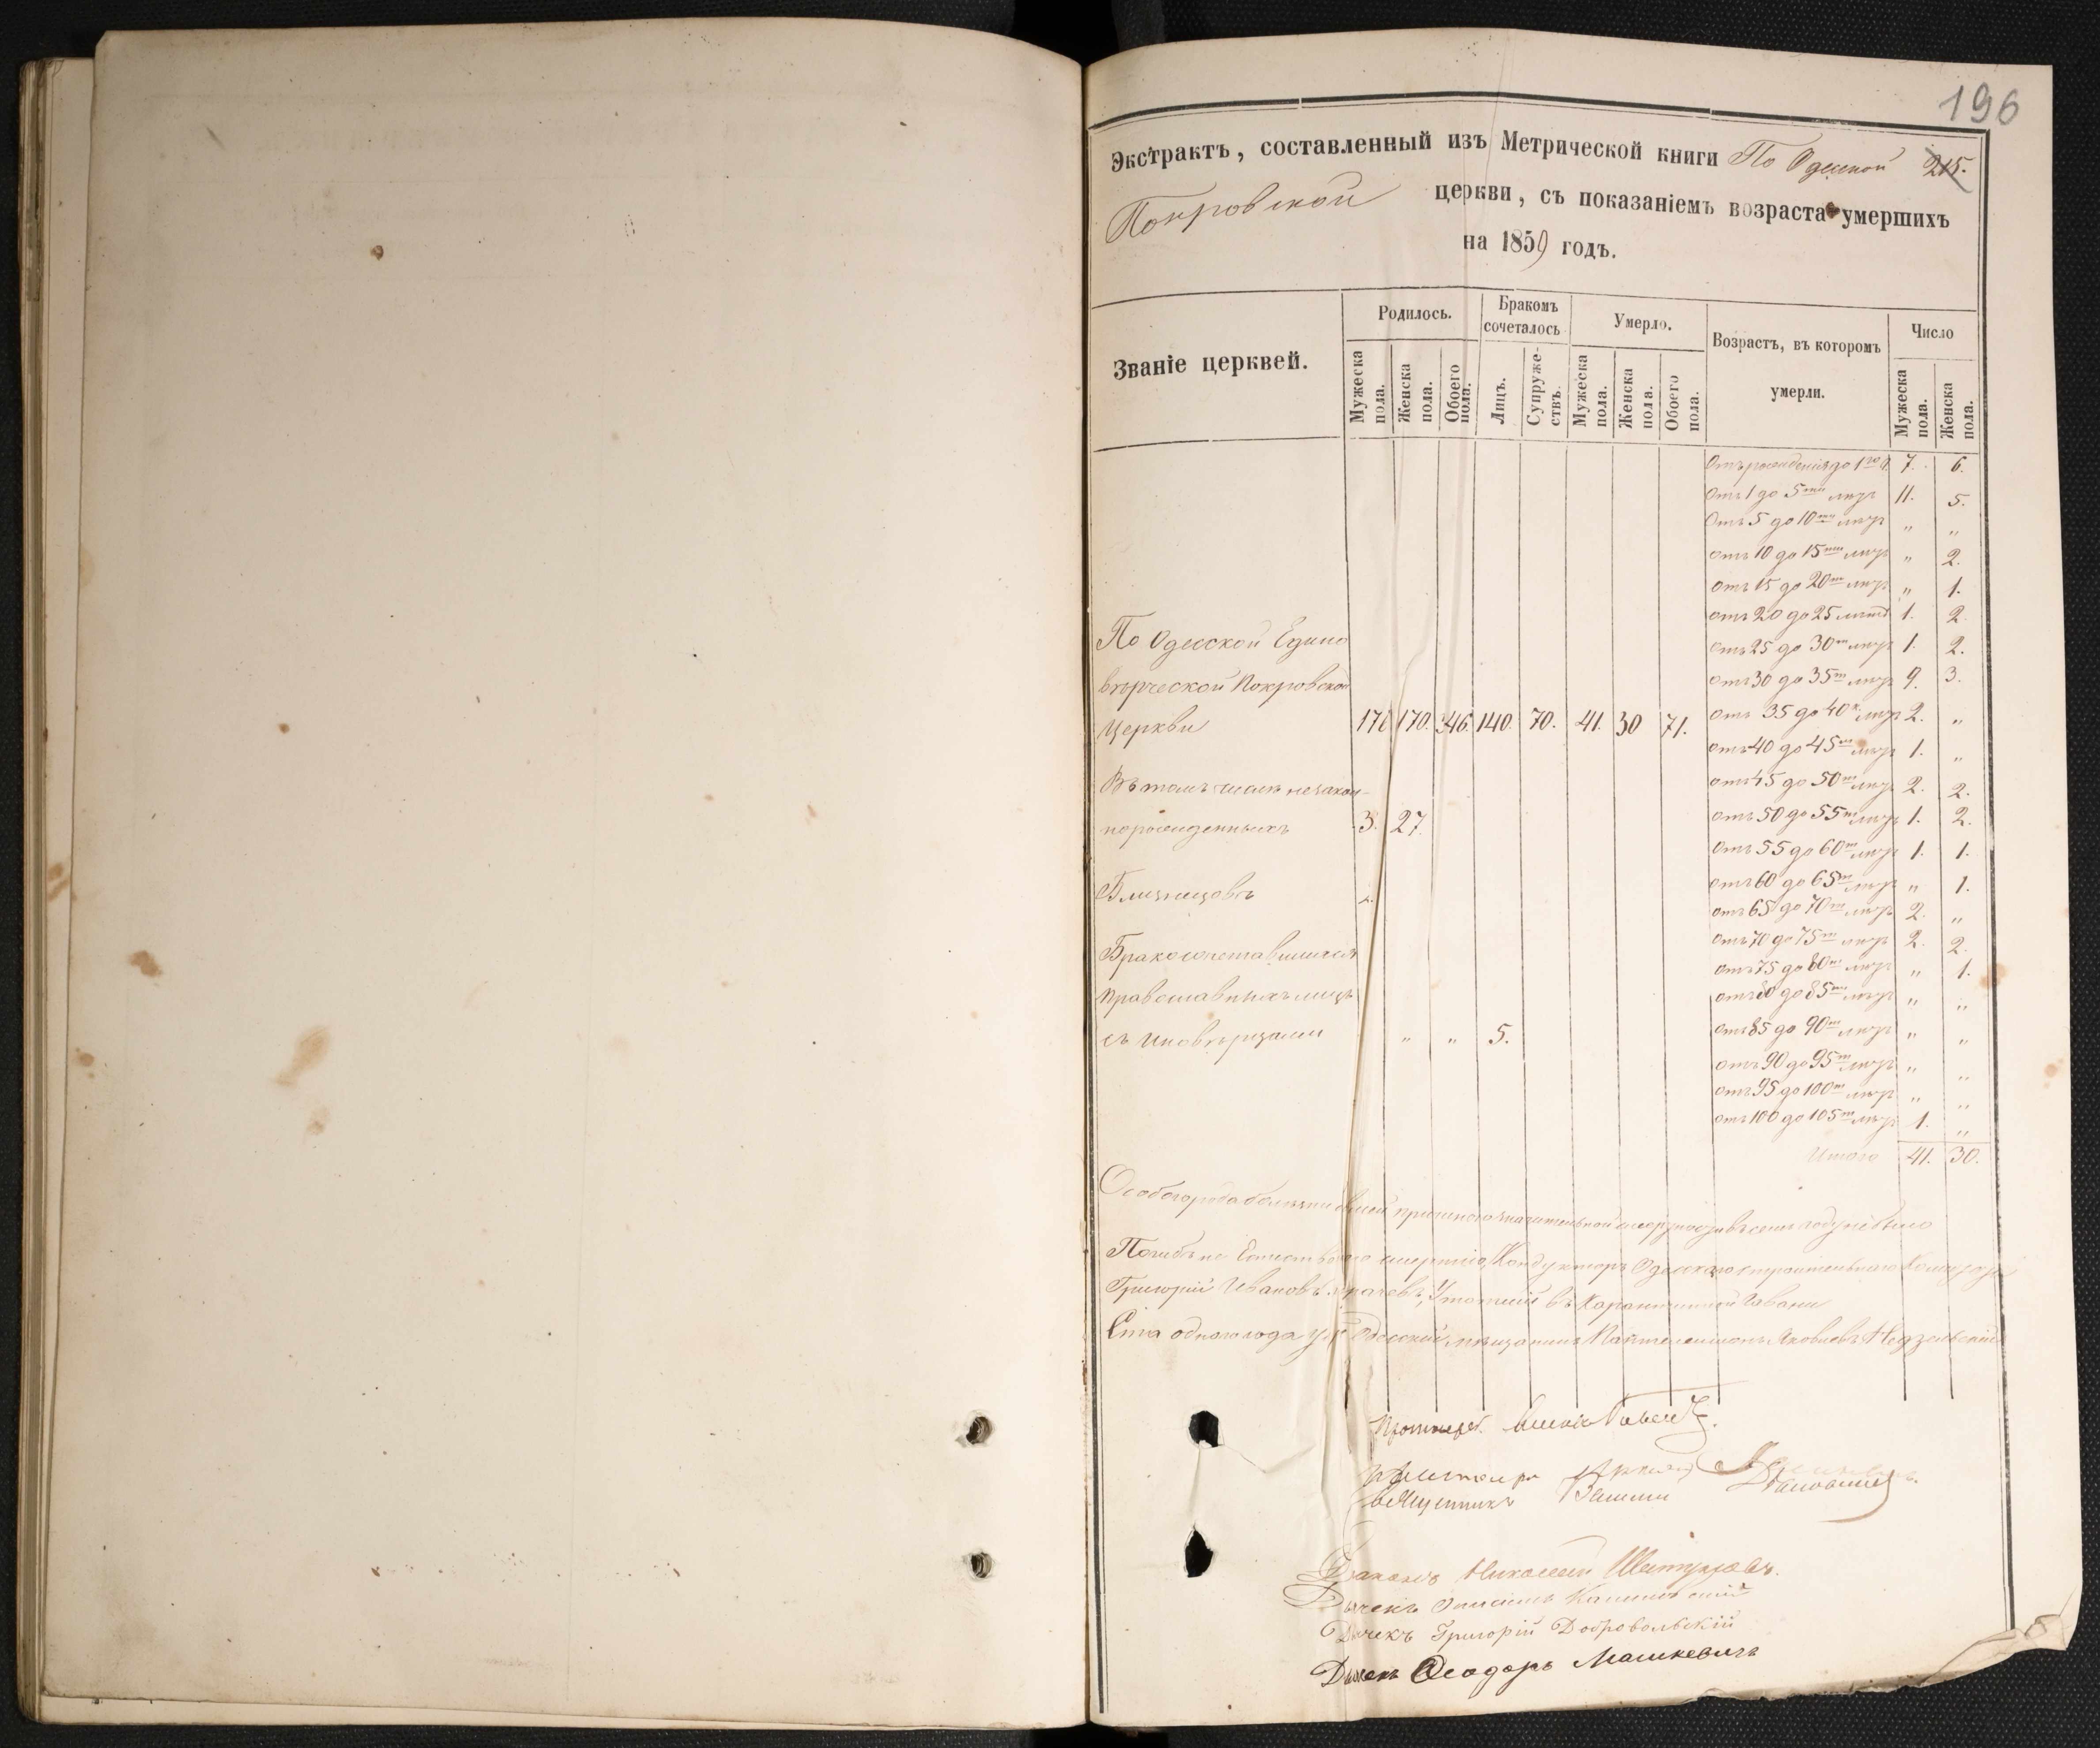 196
Экстрактъ, составленный изъ Метрической книги По Одесской 215.
Покровской церкви, съ показаніемъ возраста умершихъ
на 1859 годъ.
Званіе церквей.
Родилось.
Бракомъ сочеталось
Умерло.
Возрастъ, въ которомъ умерли.
Число
Мужеска пола.
Женска пола.
Обоего пола.
Лицъ.
Супружествъ.
Мужеска пола.
Женска пола.
Обоего пола.
Мужеска пола.
Женска пола.
Отъ рожденія до 1го 7. 6.
Отъ 1 до 5ти лѣтъ 11. 5.
Отъ 5 до 10ти лѣтъ " "
отъ 10 до 15ти лѣтъ " 2.
отъ 15 до 20ти лѣтъ " 1.
отъ 20 до 25 лѣтъ 1. 2.
По Одесской Едино
отъ 25 до 30ти лѣтъ 1. 2.
вѣрческой Покровской
отъ 30 до 35ти лѣтъ 9. 3.
Церкви 176 170. 346. 140. 70. 41. 30 71.
отъ 35 до 40 лѣтъ 2. "
отъ 40 до 45ти лѣтъ 1. "
Въ томъ числѣ незакон-
отъ 45 до 50ти лѣтъ 2. 2.
норожденныхъ 3. 27.
отъ 50 до 55ти лѣтъ 1. 2.
отъ 55 до 60ти лѣтъ 1. 1.
Близнецовъ
отъ 60 до 65ти лѣтъ " 1.
отъ 65 до 70ти лѣтъ 2. "
Бракосочетавшихся
отъ 70 до 75ти лѣтъ 2. 2.
отъ 75 до 80ти лѣтъ " 1.
православныхъ лицъ
отъ 80 до 85ти лѣтъ " "
съ иновѣрцами " " 5.
отъ 85 до 90ти лѣтъ " "
отъ 90 до 95ти лѣтъ " "
отъ 95 до 100ти лѣтъ " "
отъ 100 до 105ти лѣтъ 1. "
Итого 41. 30.
Особаго рода болѣзни бывшей причиною значительной смертности въ семъ году не было
Погибъ не Естественною смертію Кондукторъ Одесскаго строительнаго Комитета
Григорій Ивановъ утопшій въ Карантинной Гавани
Ста одного года Одесскій мѣщанинъ Пантелеимонъ Яковлевъ Недзельскій
Протоіерей
Священникъ Василій
Діаконъ Николай Шептуховъ.
Дьячекъ
Дьячекъ Григорій Добровольскій
Дьячекъ Ѳеодоръ Машкевичъ